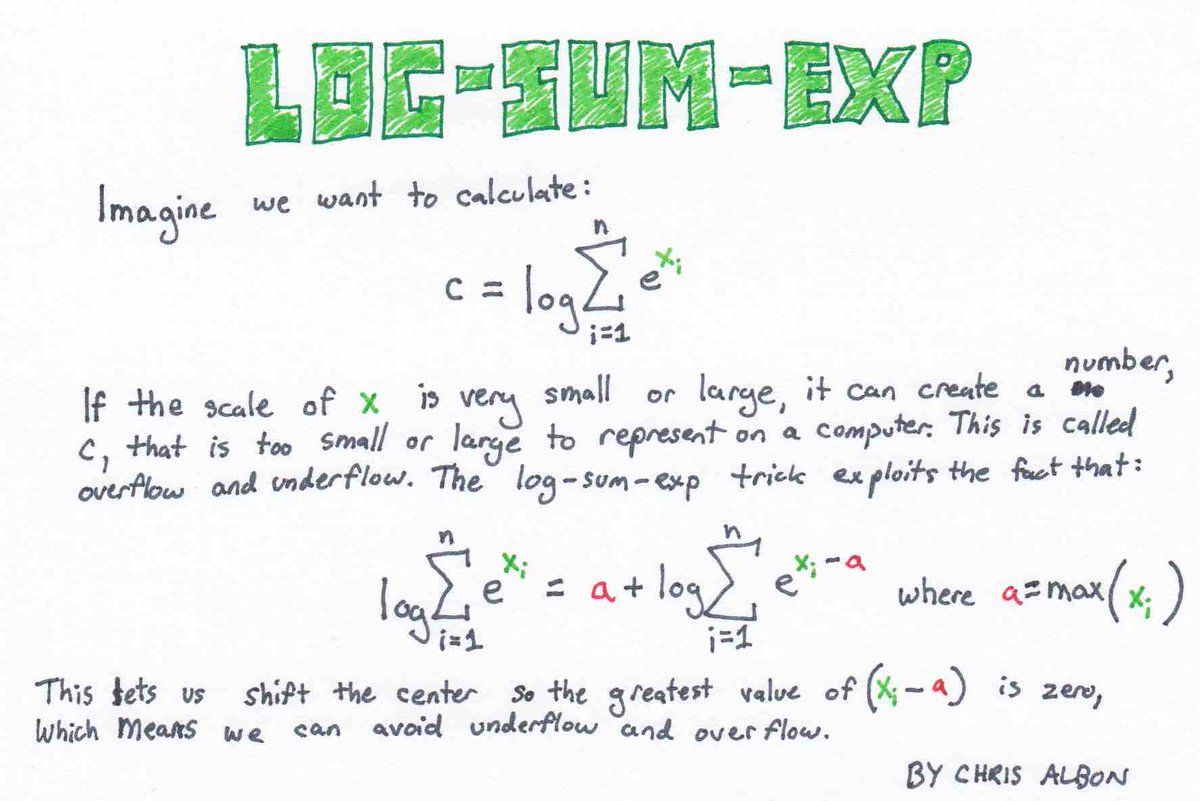 LOG-SUM-EXP
Imagine we want to calculate:
c = log ∑ᵢ₌₁ⁿ e^xᵢ
If the scale of x is very small or large, it can create a number,
c, that is too small or large to represent on a computer. This is called
overflow and underflow. The log-sum-exp trick exploits the fact that:
log ∑ᵢ₌₁ⁿ e^xᵢ = a + log ∑ᵢ₌₁ⁿ e^(xᵢ-a) where a=max(xᵢ)
This lets us shift the center so the greatest value of (xᵢ-a) is zero,
which means we can avoid underflow and overflow.
BY CHRIS ALBON